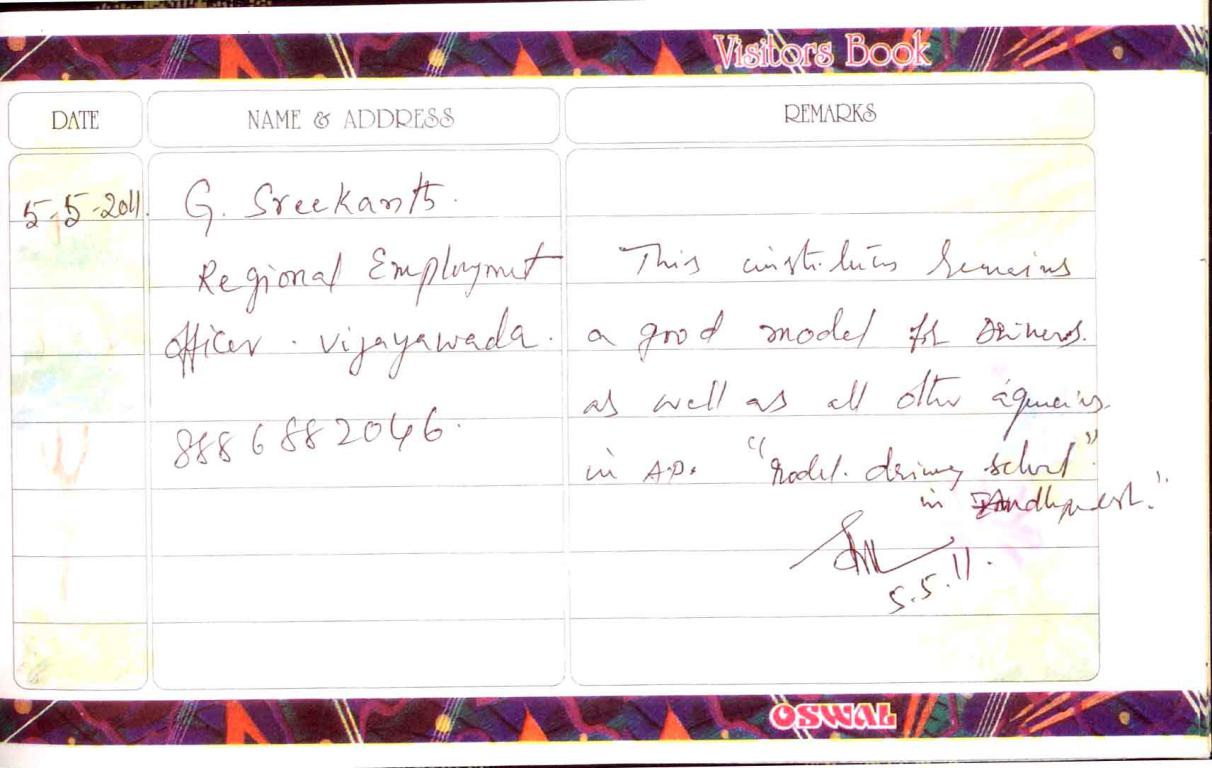 Visitors Book
DATE
NAME & ADDRESS
REMARKS
5-5-2011.
G. Sreekanth.
Regional Employment
officer. vijayawada.
8886882046.
This institution remains
a good model for Drivers.
as well as all other agencies.
in A.P. "Model driving school"
in
5.5.11.
OSWAL